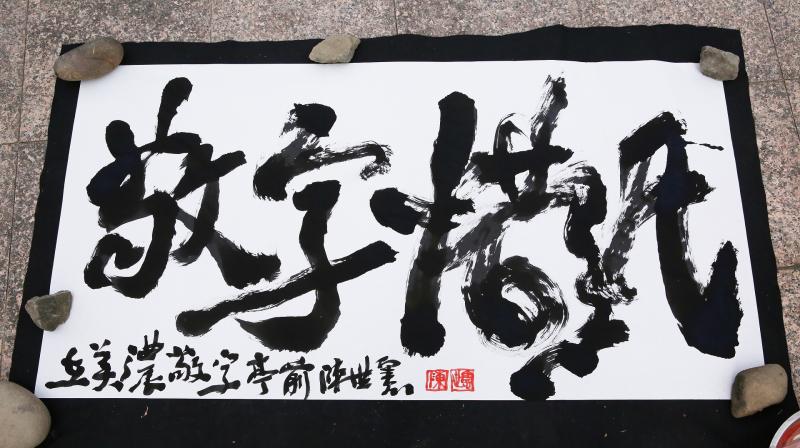 敬字惜紙
在美濃敬字亭前陳世憲